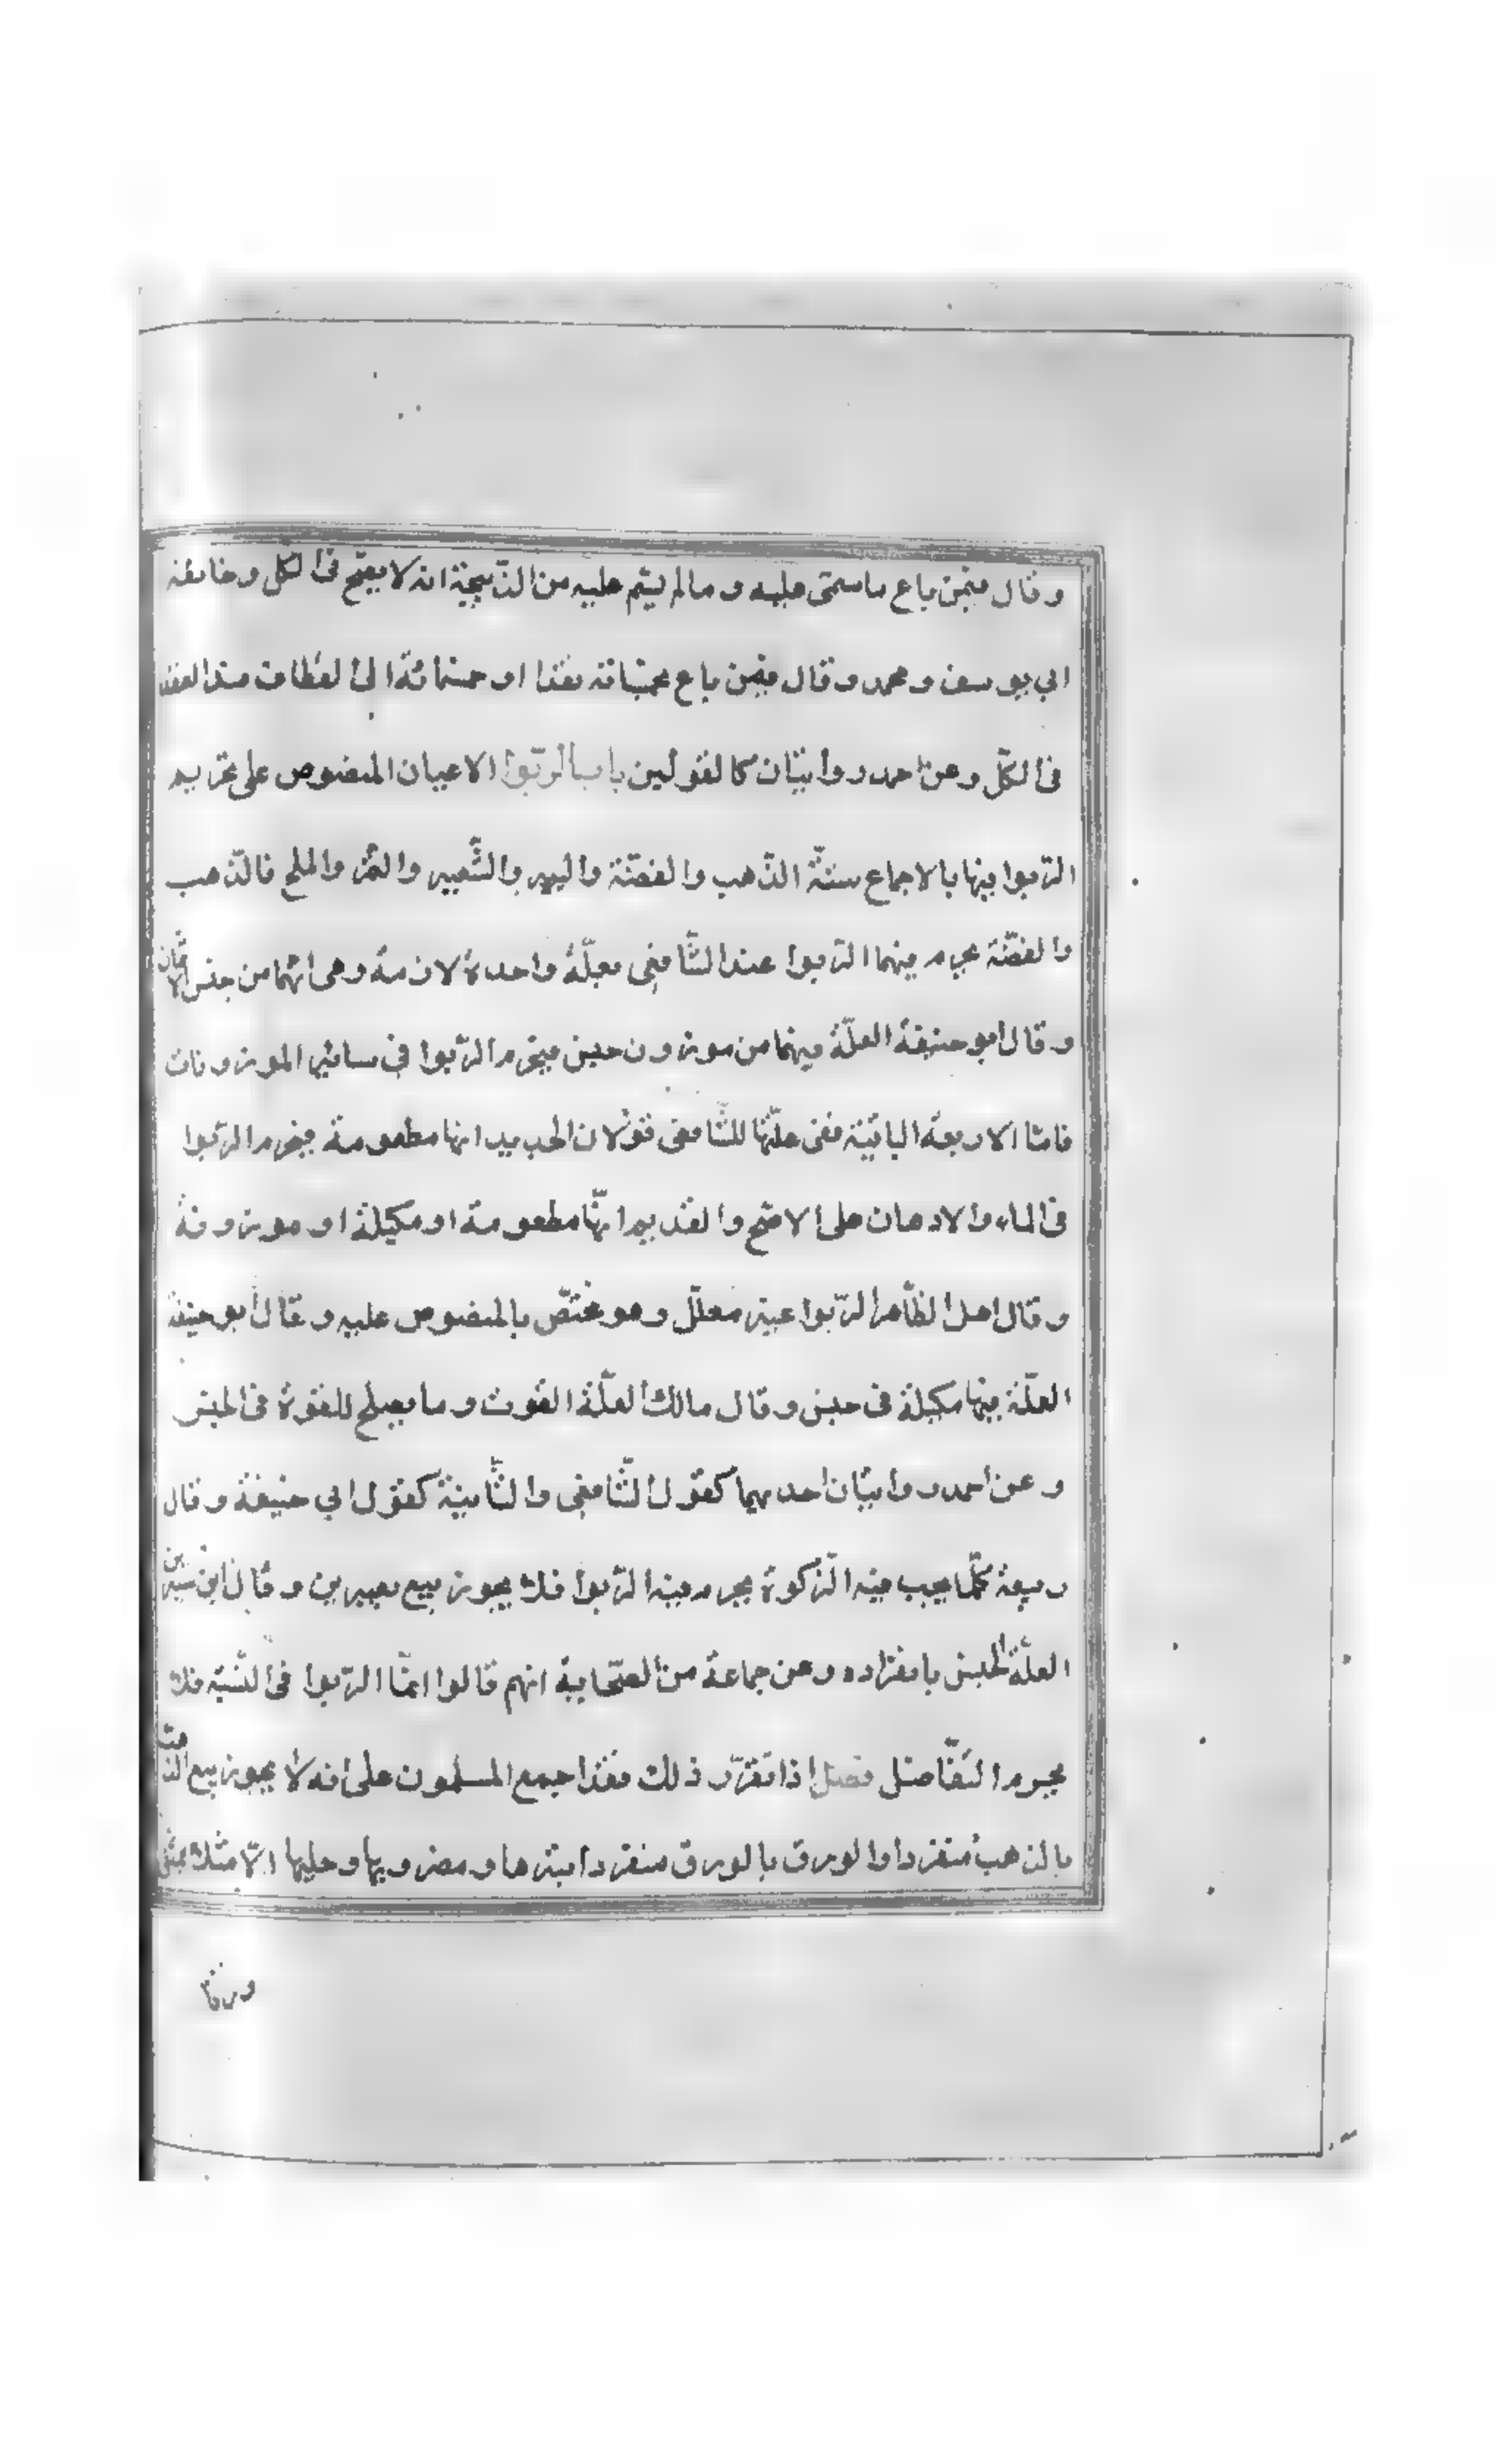 وقال فيمن باع ما سمى عليه وما لم يسم عليه من الذبيحة انه لا يصح فى الكل وخالفه
ابي يوسف ومحمد وقال فيمن باع بخمسمائة نقدا او خمسمائة الى العطا فسد العقد
فى الكلّ وعن احمد روايتان كالقولين باب الرّبوا الاعيان المنصوص على تحريم
الرّبوا فيها بالاجماع ستّة الذّهب والفضّة والبر والشّعير والتمر والملح فالذّهب
والفضّة يحرم فيهما الرّبوا عند الشّافعى بعلّة واحدة لازمة وهى انّهما من جنس الاثمان
وقال ابو حنيفة العلّة فيهما من موزون جنس فيحرم الرّبوا فى سائر الموزونات
فامّا الاربعة الباقية ففى علّتها للشّافعى قولان الجديد انها مطعومة فيحرم الرّبوا
فى الماء والادهان على الاصح والقديم انّها مطعومة او مكيلة او موزونة
وقال اهل الظّاهر الرّبوا غير معلّل وهو مختصّ بالمنصوص عليه وقال ابو حنيفة
العلّة فيها مكيلة فى جنس وقال مالك العلّة القوت وما يصلح للقوة فى الجنس
وعن احمد روايتان احديهما كقول الشّافعى والثّانية كقول ابي حنيفة وقال
ربيعة كلّما يجب فيه الزّكوة يحرم فيه الرّبوا فلا يجوز بيع بعيرين وقال ابن سيرين
العلّة الجنس بانفراده وعن جماعة من الصّحابة انهم قالوا انمّا الرّبوا فى النّسية فلا
يحرم التّفاضل فصل اذا تقرّر ذلك فقد اجمع المسلمون على انه لا يجوز بيع الذهب
بالذهب منفردا والورق بالورق منفردا تبرها ومضروبها وحليها الّا مثلا بمثل
وزنا